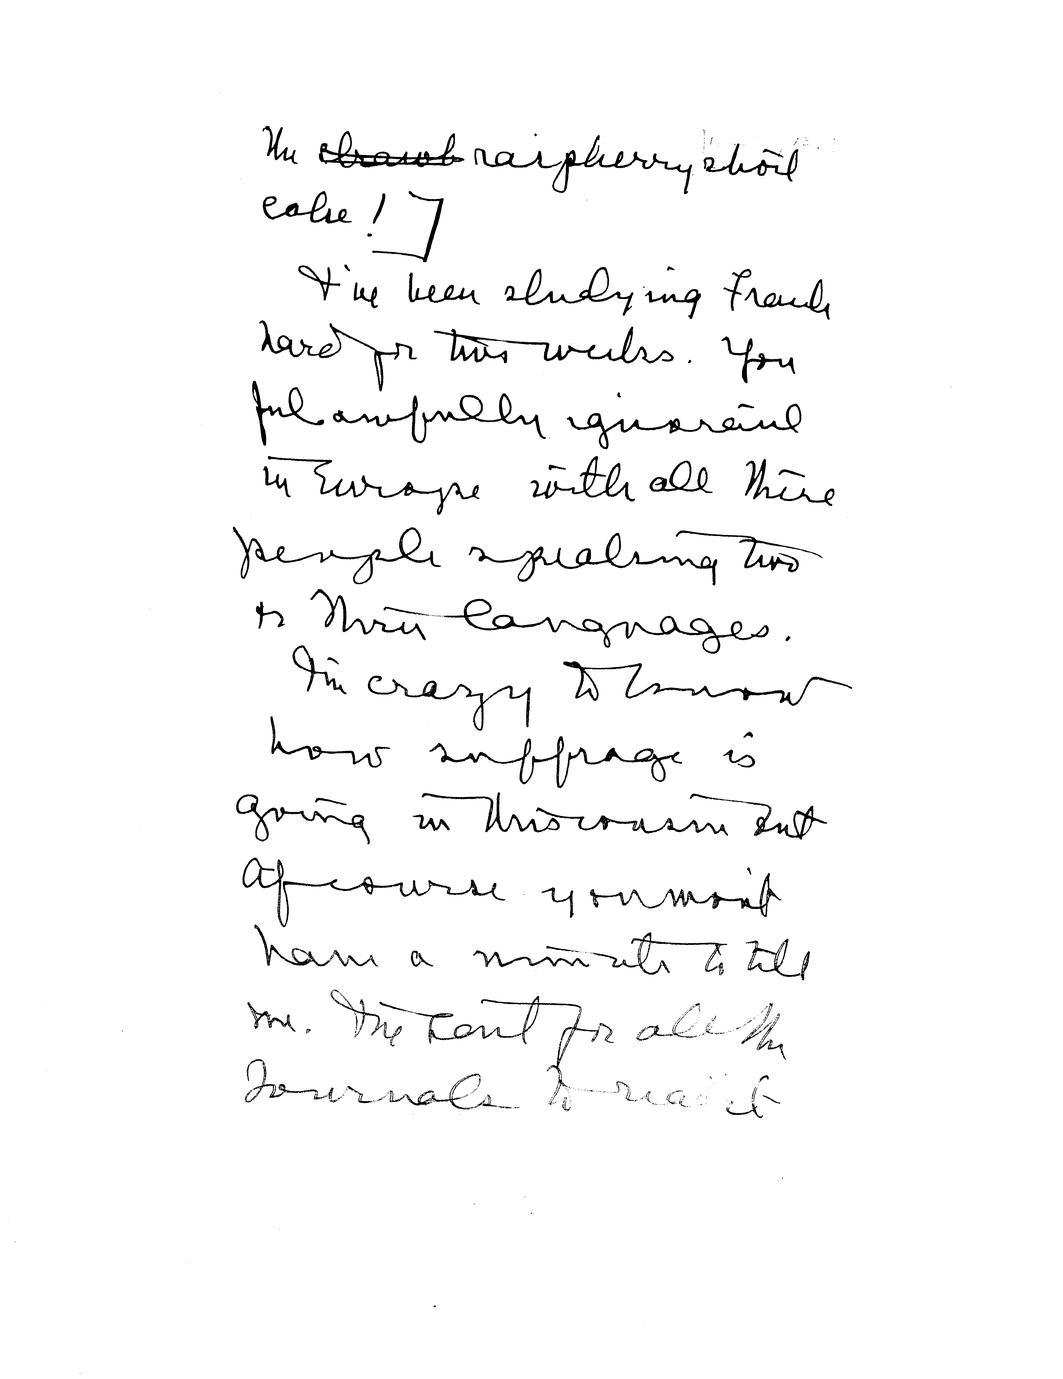 The strawb raspberry short
cake!]
I've been studying French
hard for two weeks. You
feel awfully ignorant
in Europe with all these
people speaking two
or three languages.
I'm crazy to know
how suffrage is
going in Wisconsin but
of course you won't
have a minute to tell
me. I've sent for all the
Journals to read it